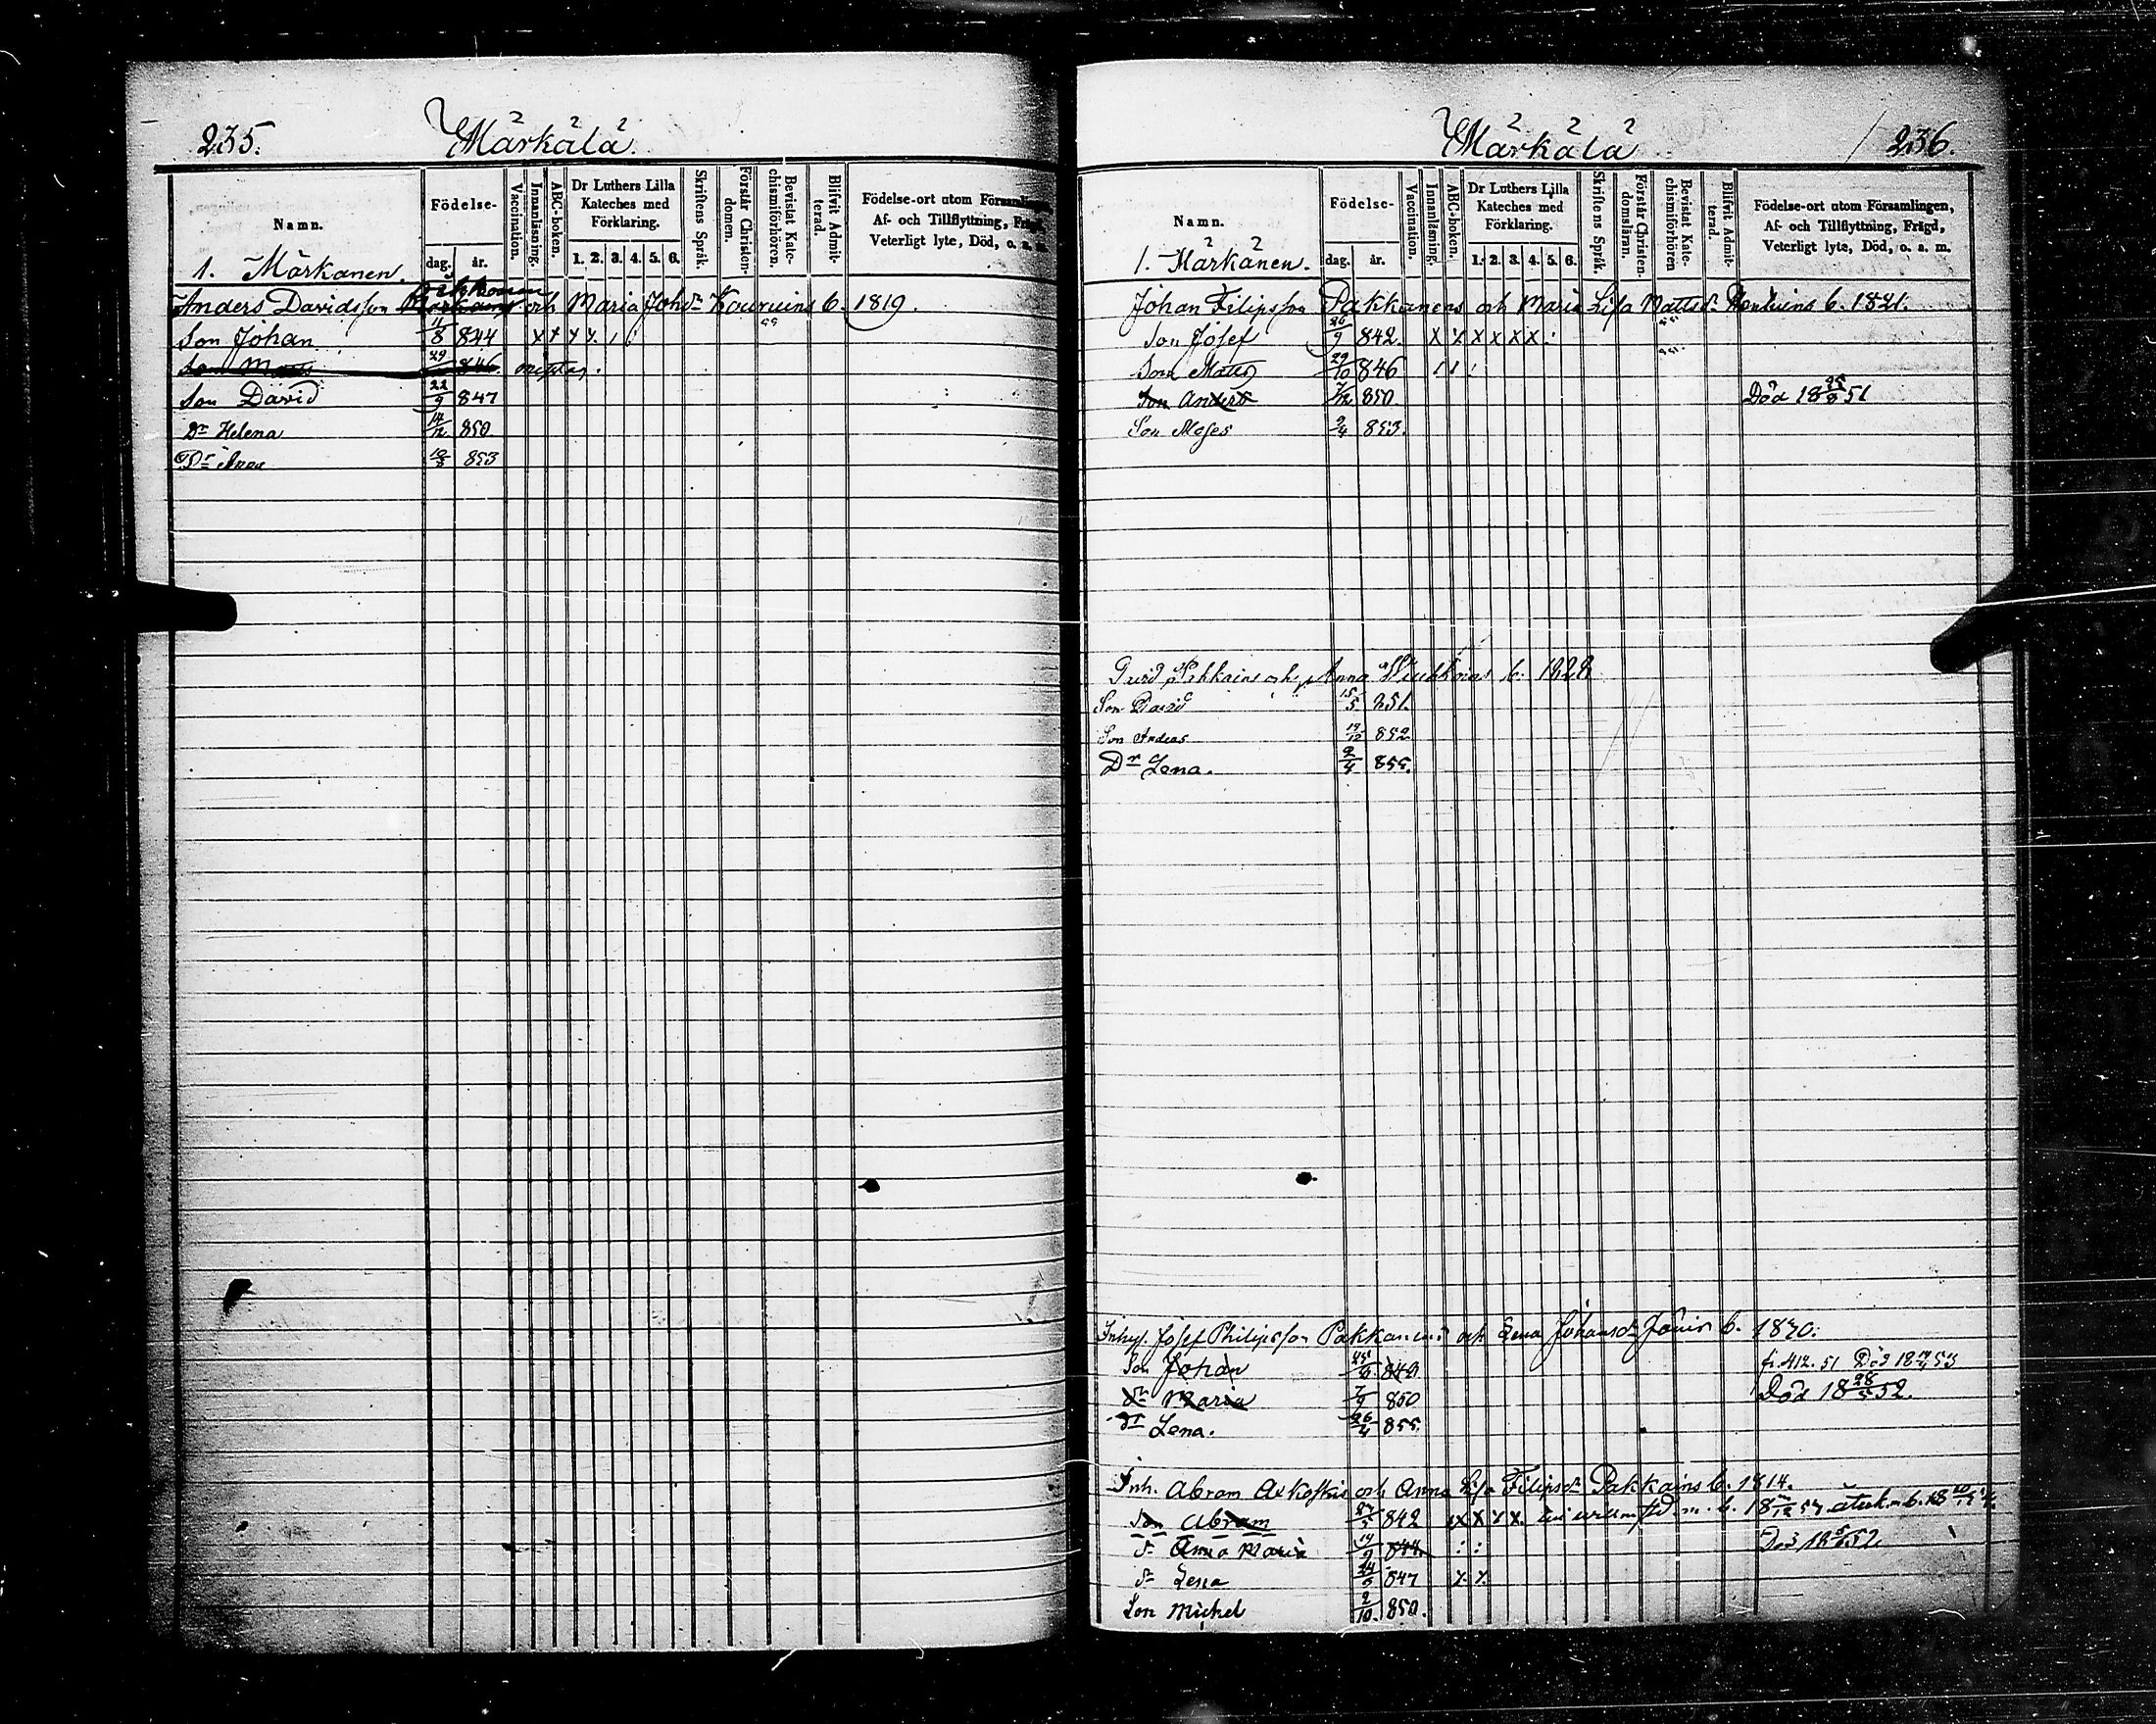 235. Märkälä
Namn.
Födelse-
dag. år.
Vaccination.
Innanläsning.
ABC-boken.
Dr Luthers Lilla Kateches med Förklaring.
1. 2. 3. 4. 5. 6.
Skriftens Språk.
Förstår Christendomen.
Bevistat Katechismiförhören.
Blifvit Admitterad.
Födelse-ort utom Församlingen,
Af- och Tillflyttning, Frägd,
Veterligt lyte, Död, o. a. m.
1. Märkänen.
Anders Davidsson och Maria Johsdr 6. 1819.
Son Johan 8 844 x x x x
Son 846
Son David 22/9 847
Dr Helena 14/12 850
Dr Anna 853
Märkälä 236.
Namn.
Födelse-
dag. år.
Vaccination.
Innanläsning.
ABC-boken.
Dr Luthers Lilla Kateches med Förklaring.
1. 2. 3. 4. 5. 6.
Skriftens Språk.
Förstår Christendomsläran.
Bevistat Katechismiförhören
Blifvit Admitterad.
Födelse-ort utom Församlingen,
Af- och Tillflyttning, Frägd,
Veterligt lyte, Död, o. a. m.
1. Märkänen.
Johan Filipsson Pakkanens och Maria Lisa Mattsdr 6. 1821.
Son Josef 26/9 842. x x x x x x
Son Matts 29/10 846
Son Anders 7/12 850 Död 18 51
Son Moses 9/4 853.
och Anna 6. 1828
Son David 15/5 851.
Son Andeas 852
Dr Lena. 2/4 855.
Inhys. Josef Philipsson Pakkanens och Lena Johansdr 6. 1820.
Son Johan 849 fr. 412. 51 Död 18 53
dr Maria 7/9 850 Död 18 28/5 52.
dr Lena. 26/4 855.
Inh. Abram och Anna Lisa Filipsdr Pakkains 6. 1814.
Son Abram 842 x x x x
dr Anna Maria 844. Död 18 52
dr Lena 847 x x
Son Michel 2/10. 850.